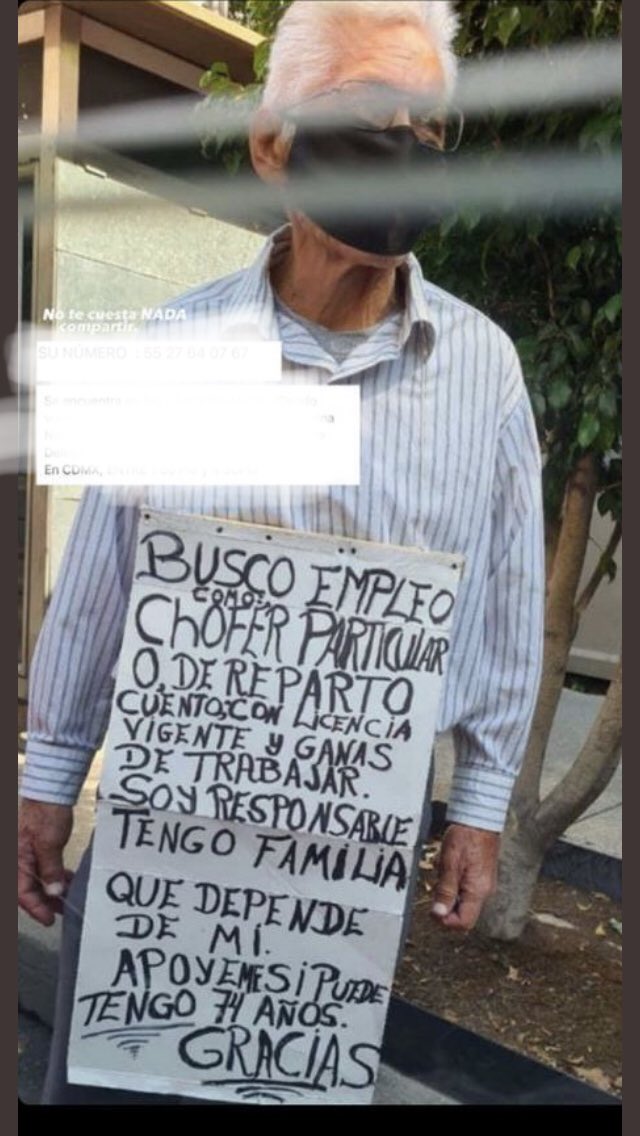 No te cuesta NADA
compartir.
SU NÚMERO : 55 27 64 07 67
Se encuentra
En CDMX, ENTRE
BUSCO EMPLEO
COMO:
CHOFER PARTICULAR
O, DE REPARTO
CUENTO, CON LICENCIA
VIGENTE Y GANAS
DE TRABAJAR.
SOY RESPONSABLE
TENGO FAMILIA
QUE DEPENDE
DE MI.
APOYEME SI PUEDE
TENGO 74 AÑOS.
GRACIAS